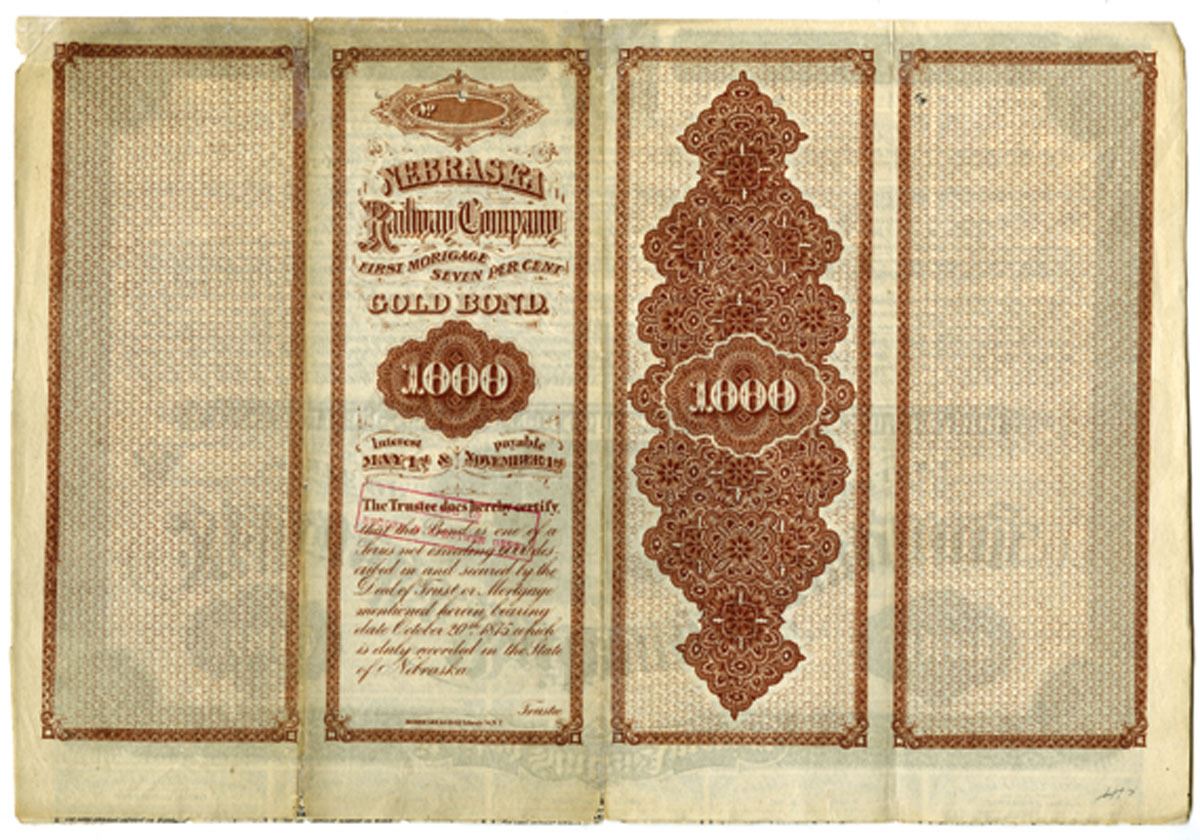 Nº
NEBRASKA
Railway Company
FIRST MORTGAGE
SEVEN PER CENT
GOLD BOND.
1000
Interest payable
MAY 1st & NOVEMBER 1st
The Trustee does hereby certify,
that this Bond is one of a
Series not exceeding des-
cribed in and secured by the
Deed of Trust or Mortgage
mentioned herein bearing
date October 20th 1875 which
is duly recorded in the State
of Nebraska
Trustee
1000